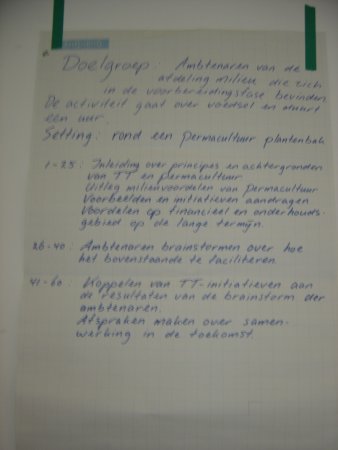 Doelgroep: Ambtenaren van de
afdeling milieu die zich
in de voorbereidingsfase bevinden.
De activiteit gaat over voedsel en duurt
een uur.
Setting: rond een permacultuur plantenbak
1-25: Inleiding over principes en achtergronden
van TT en permacultuur
Uitleg milieuvoordelen van permacultuur
Voorbeelden en initiatieven aandragen
Voordelen op financieel en onderhouds-
gebied op de lange termijn.
26-40: Ambtenaren brainstormen over hoe
het bovenstaande te faciliteren.
41-60: Koppelen van TT-initiatieven aan
de resultaten van de brainstorm der
ambtenaren.
Afspraken maken over samen-
werking in de toekomst.